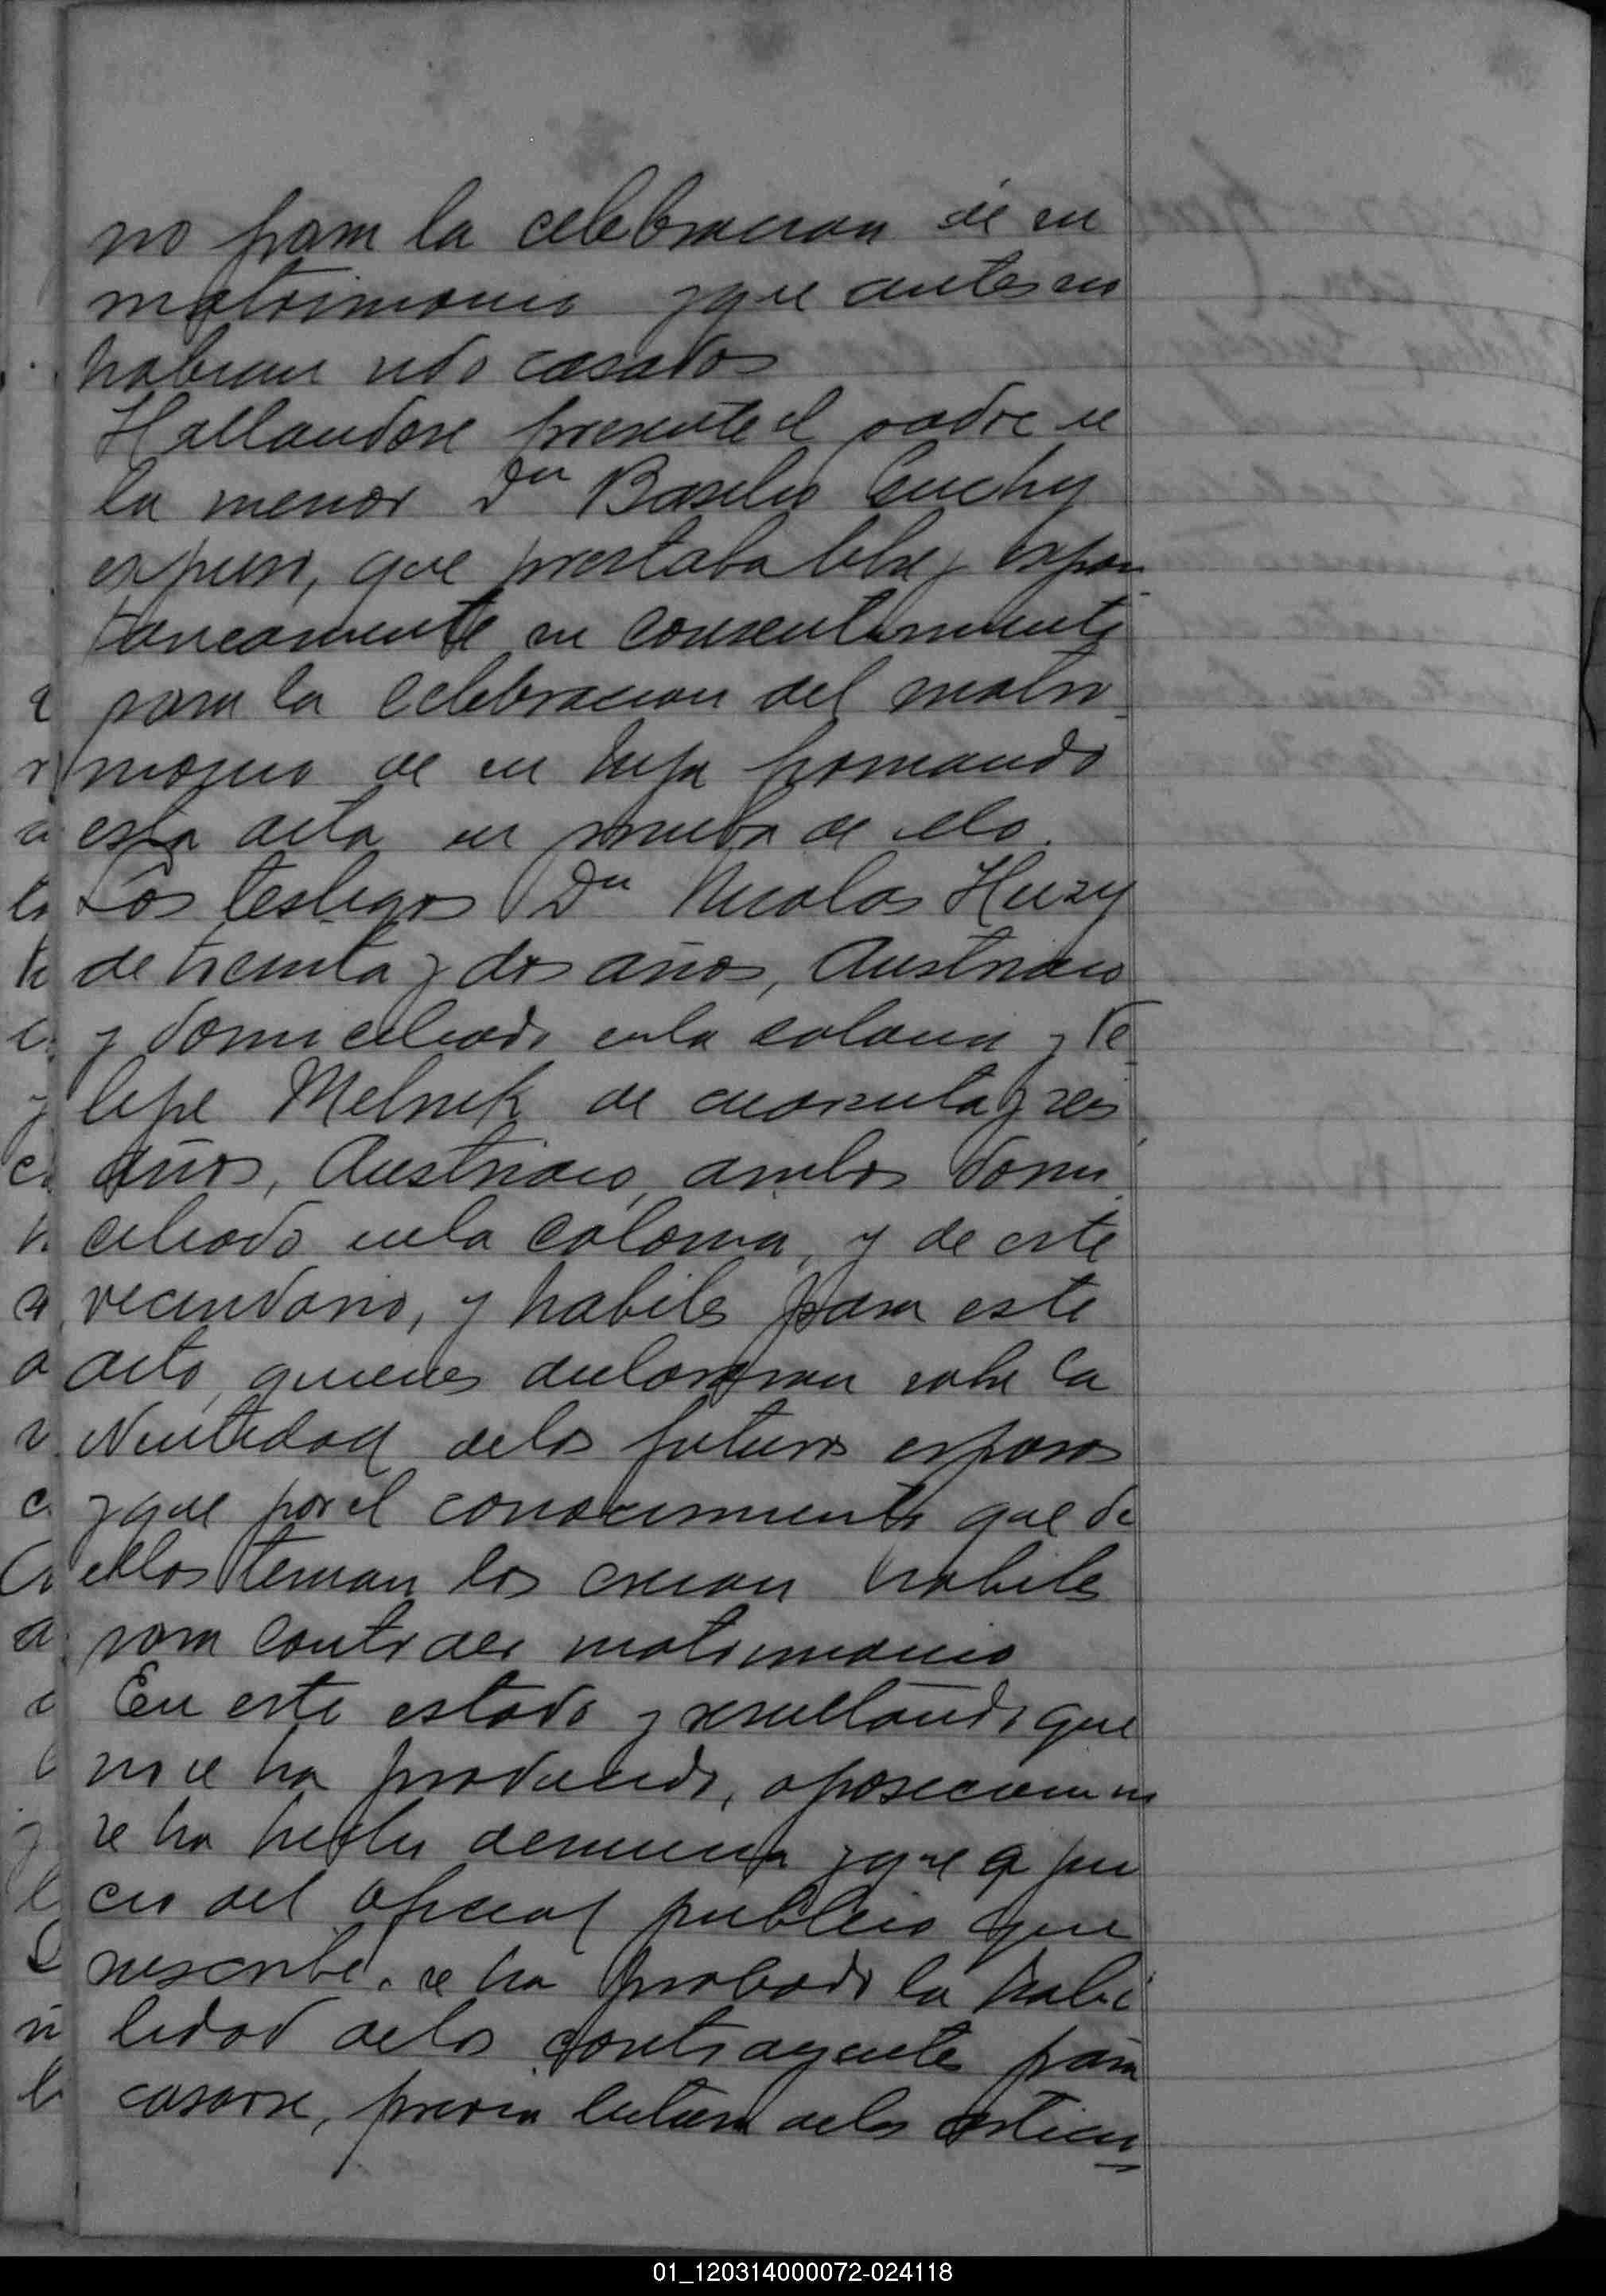 no para la celebracion de su
matrimonio y que antes no
habian sido casados
Hallandose presente el padre de
la menor Dn Basilio Cuchy
expuso, que prestaba libre y espon
taneamente su consentimiento
para la celebracion del matri
monio de su hija firmando
esta acta en prueba de ello.
Los testigos Dn Nicolas Huzy
de treinta y dos años, Austriaco
y domiciliado en la colonia y Fe
lipe Melnik de cuarenta y seis
años, Austriaco, ambos domi
ciliado en la colonia, y de este
vecindario, y habiles para este
acto, quienes declararon sobre la
identidad de los futuros esposos
y que por el conocimiento que de
ellos tenian los creian habiles
para contraer matrimonio
En este estado y resultando que
no se ha producido, oposicion ni
se ha hecho denuncia y que a jui
cio del oficial publico que
suscribe. se ha probado la habi
lidad de los contrayentes para
casarse, previa lectura de los articu
01_120314000072-024118